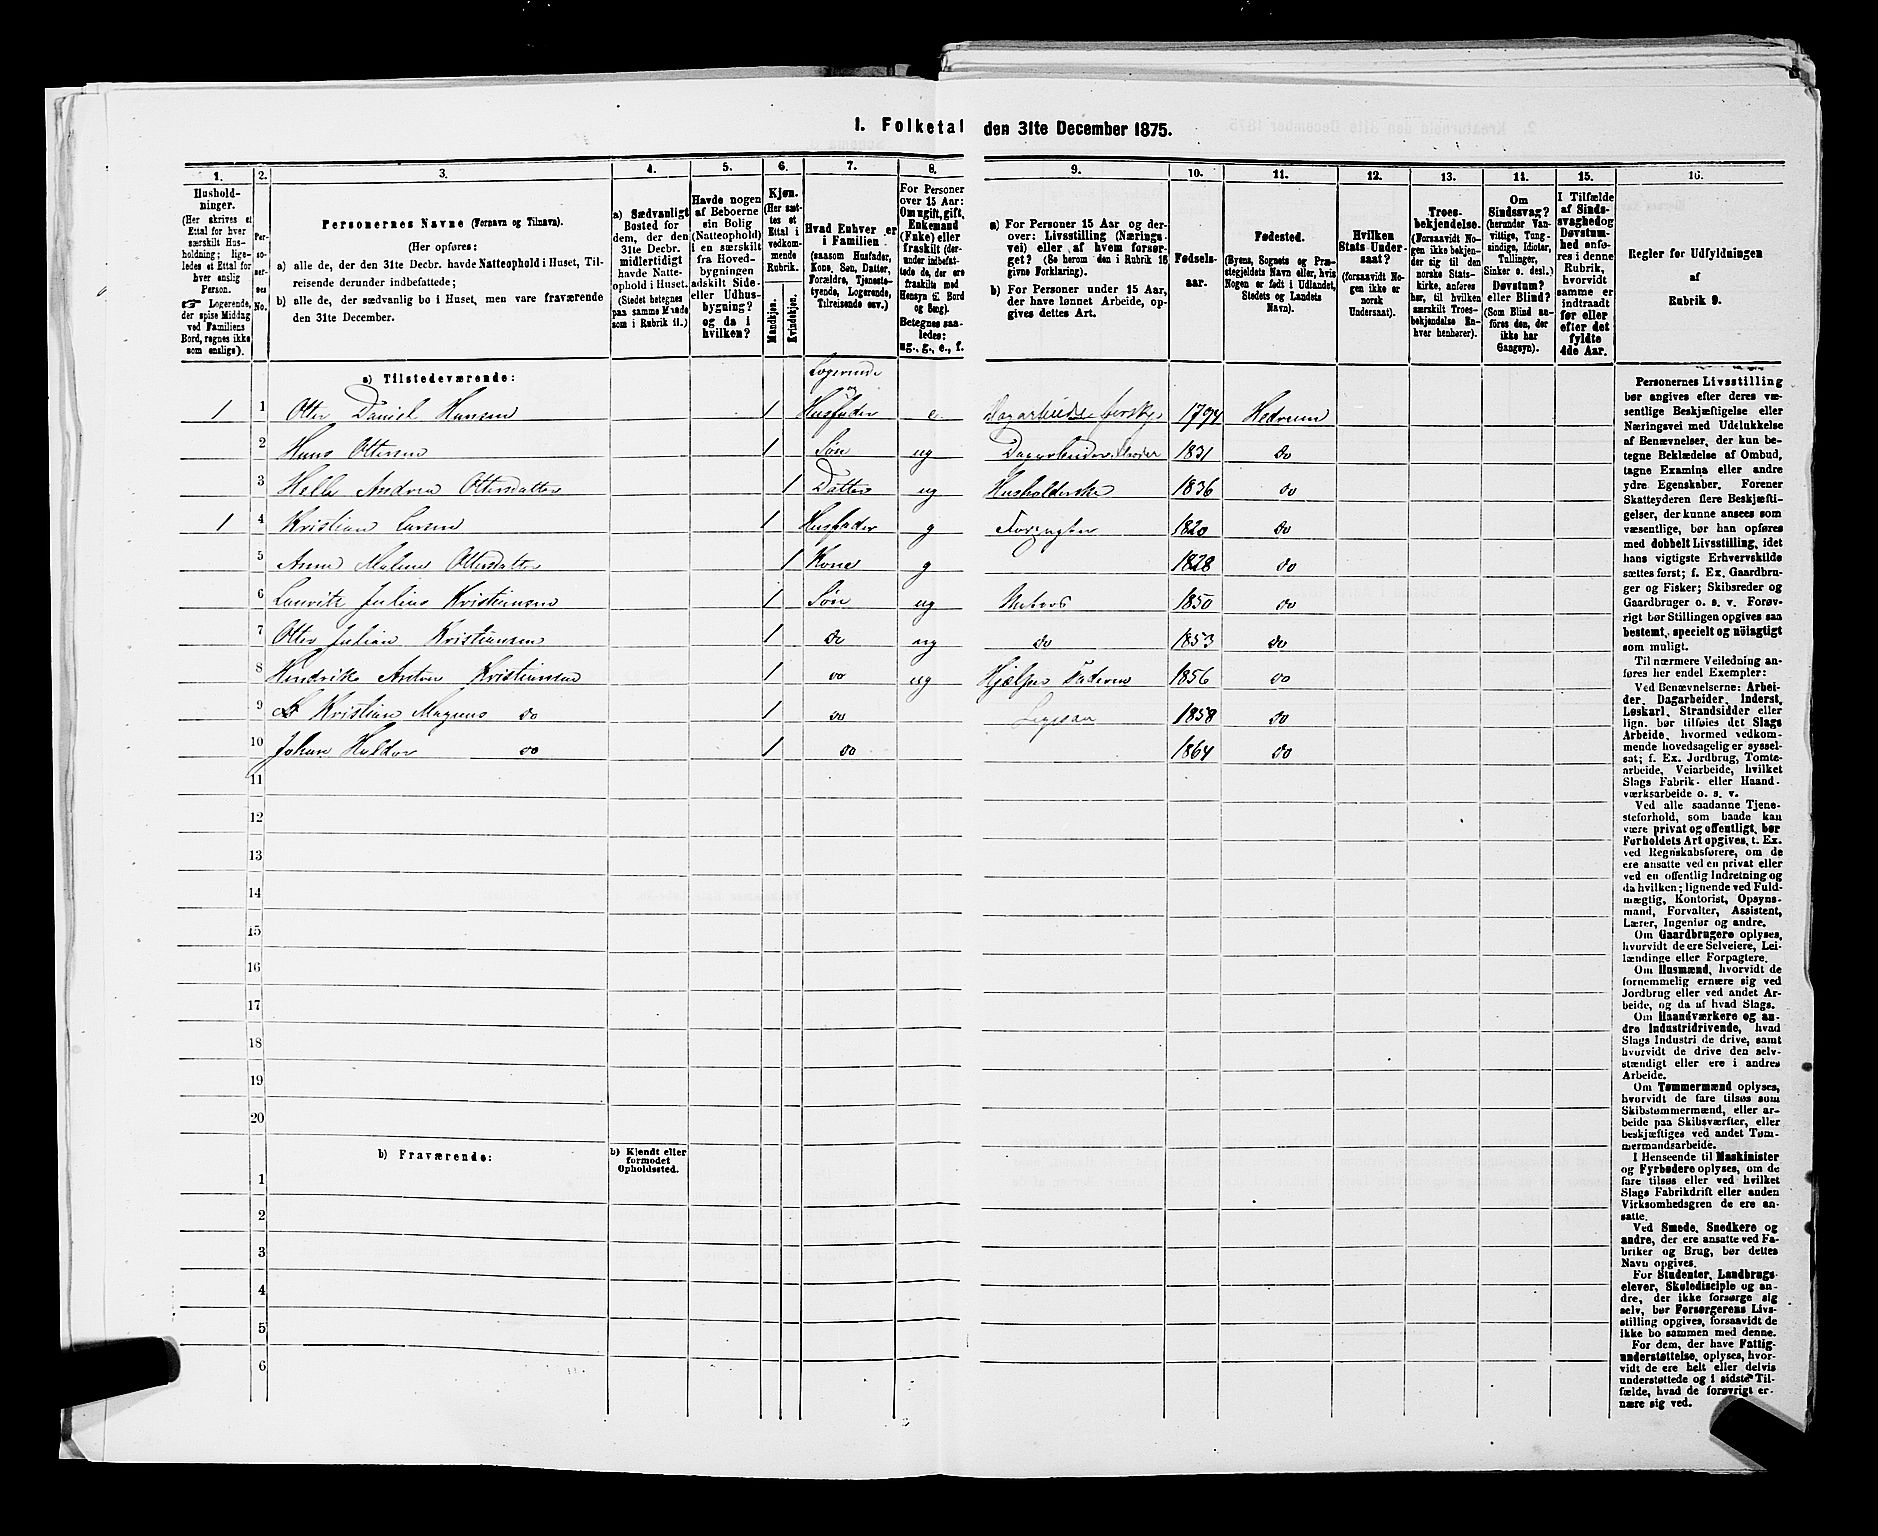 1. Folketal den 31te December 1875.
1.
Hushold-
ninger.
(Her skrives et
Ettal for hver
særskilt Hus-
holdning; lige-
ledes et Ettal for
hver enslig
Person.
☞ Logerende,
der spise Middag
ved Familiens
Bord, regnes ikke
som enslige).
2.
Per-
so-
ner-
nes
No.
3.
Personernes Navne (Fornavn og Tilnavn).
(Her opføres:
a) alle de, der den 31te Decbr. havde Natteophold i Huset, Til-
reisende derunder indbefattede;
b) alle de, der sædvanlig bo i Huset, men vare fraværende
den 31te December.
4.
a) Sædvanligt
Bosted for
dem, der den
31te Decbr.
midlertidigt
havde Natte-
ophold i Huset.
(Stedet betegnes
paa samme Maade
som i Rubrik 11.)
5.
Havde nogen
af Beboerne
sin Bolig
(Natteophold)
i en særskilt
fra Hoved-
bygningen
adskilt Side-
eller Udhus-
bygning?
og da i
hvilken?
6.
Kjøn.
(Her sæt-
tes et
Ettal i
vedkom-
mende
Rubrik.
Mandkjøn.
Kvindekjøn.
7.
Hvad Enhver er
i Familien
(saasom Husfader,
Kone, Søn, Datter,
Forældre, Tjeneste-
tyende, Logerende,
Tilreisende osv.)
8.
For Personer
over 15 Aar:
Om ugift, gift,
Enkemand
(Enke) eller
fraskilt (der-
under indbefat-
tede de, der ere
fraskilte med
Hensyn til Bord
og Seng).
Betegnes saa-
ledes:
ug., g., e., f.
9.
a) For Personer 15 Aar og der-
over: Livsstilling (Nærings-
vei) eller af hvem forsør-
get? (Se herom den i Rubrik 16
givne Forklaring).
b) For Personer under 15 Aar,
der have lønnet Arbeide, op-
gives dettes Art.
10.
Fødsels-
aar.
11.
Fødested.
(Byens, Sognets og Præ-
stegjeldets Navn eller, hvis
Nogen er født i Udlandet,
Stedets og Landets
Navn).
12.
Hvilken
Stats Under-
saat?
(forsaavidt No-
gen ikke er
norsk
Undersaat).
13.
Troes-
bekjendelse.
(Forsaavidt No-
gen ikke bekjen-
der sig til den
norske Stats-
kirke, anføres
her, til hvilken
særskilt Troes-
bekjendelse En-
hver henhører).
14.
Om
Sindssvag?
(herunder Van-
vittige, Tung-
sindige, Idioter,
Tullinger,
Sinker o. desl.)
Døvstum?
eller Blind?
(Som Blind an-
føres den, der
ikke har
Gangsyn).
15.
I Tilfælde
af Sinds-
svaghed og
Døvstum-
hed anfø-
res i denne
Rubrik,
hvorvidt
samme er
indtraadt
før eller
efter det
fyldte
4de Aar.
16.
Regler for Udfyldningen
af
Rubrik 9.
a) Tilstedeværende:
Logerende
og
1 1 Otter Daniel Hansen 1 Husfader e. 1794 Hedrum
2 Hans Ottersen 1 Søn ug 1831 do
3 Helle Andrea Ottersdatter 1 Datter ug Husholderske 1836 do
1 4 Kristian Larsen 1 Husfader g Forpagter 1820 do
5 Anne Malene Ottersdatter 1 Kone g 1828 do
6 Lauritz Julius Kristiansen 1 Søn ug Matros 1850 do
7 Otter Julian Kristiansen 1 do ug do 1853 do
8 Hendrik Anton Kristiansen 1 do ug Hjælper Faderen 1856 do
9 Kristian Magnus do 1 do Ligesaa 1858 do
10 Johan Haldor do 1 do 1864 do
11
12
13
14
15
16
17
18
19
20
b) Fraværende:
b) Kjendt eller
formodet
Opholdssted.
1
2
3
4
5
6
Personernes Livsstilling
bør angives efter deres væ-
sentlige Beskjæftigelse eller
Næringsvei med Udelukkelse
af Benævnelser, der kun be-
tegne Beklædelse af Ombud,
tagne Examina eller andre
ydre Egenskaber. Forener
Skatteyderen flere Beskjæfti-
gelser, der kunne ansees som
væsentlige, bør han opføres
med dobbelt Livsstilling, idet
hans vigtigste Erhvervskilde
sættes først; f. Ex. Gaardbru-
ger og Fisker; Skibsreder og
Gaardbruger o. s. v. Forøv-
rigt bør Stillingen opgives saa
bestemt, specielt og nöiagtigt
som muligt.
Til nærmere Veiledning an-
føres her endel Exempler:
Ved Benævnelserne: Arbei-
der, Dagarbeider, Inderst,
Løskarl, Strandsidder eller
lign. bør tilføies det Slags
Arbeide, hvormed vedkom-
mende hovedsagelig er syssel-
sat; f. Ex. Jordbrug, Tomte-
arbeide, Veiarbeide, hvilket
Slags Fabrik- eller Haand-
værksarbeide o. s. v.
Ved alle saadanne Tjene-
steforhold, som baade kan
være privat og offentligt, bør
Forholdets Art opgives, t. Ex.
ved Regnskabsførere, om de
ere ansatte ved en privat eller
ved en offentlig Indretning og
da hvilken; lignende ved Fuld-
mægtig, Kontorist, Opsyns-
mand, Forvalter, Assistent,
Lærer, Ingeniør og andre.
Om Gaardbrugere oplyses,
hvorvidt de ere Selveiere, Lei-
lændinge eller Forpagtere.
Om Husmænd, hvorvidt de
fornemmelig ernære sig ved
Jordbrug eller ved andet Ar-
beide, og da af hvad Slags.
Om Haandværkere og an-
dre Industridrivende, hvad
Slags Industri de drive, samt
hvorvidt de drive den selv-
stændigt eller ere i andres
Arbeide.
Om Tømmermænd oplyses,
hvorvidt de fare tilsøs som
Skibstømmermænd, eller ar-
beide paa Skibsværfter, eller
beskjæftiges ved andet Tøm-
mermandsarbeide.
I Henseende til Maskinister
og Fyrbødere oplyses, om de
fare tilsøs eller ved hvilket
Slags Fabrikdrift eller anden
Virksomhedsgren de ere an-
satte.
Ved Smede, Snedkere og
andre, der ere ansatte ved Fa-
briker og Brug, bør dettes
Navn opgives.
For Studenter, Landbrugs-
elever, Skoledisciple og an-
dre, der ikke forsørge sig
selv, bør Forsørgerens Livs-
stilling opgives, forsaavidt de
ikke bo sammen med denne.
For dem, der have Fattig-
understøttelse, oplyses, hvor-
vidt de ere helt eller delvis
understøttede og i sidste Til-
fælde, hvad de forøvrigt er-
nære sig ved.